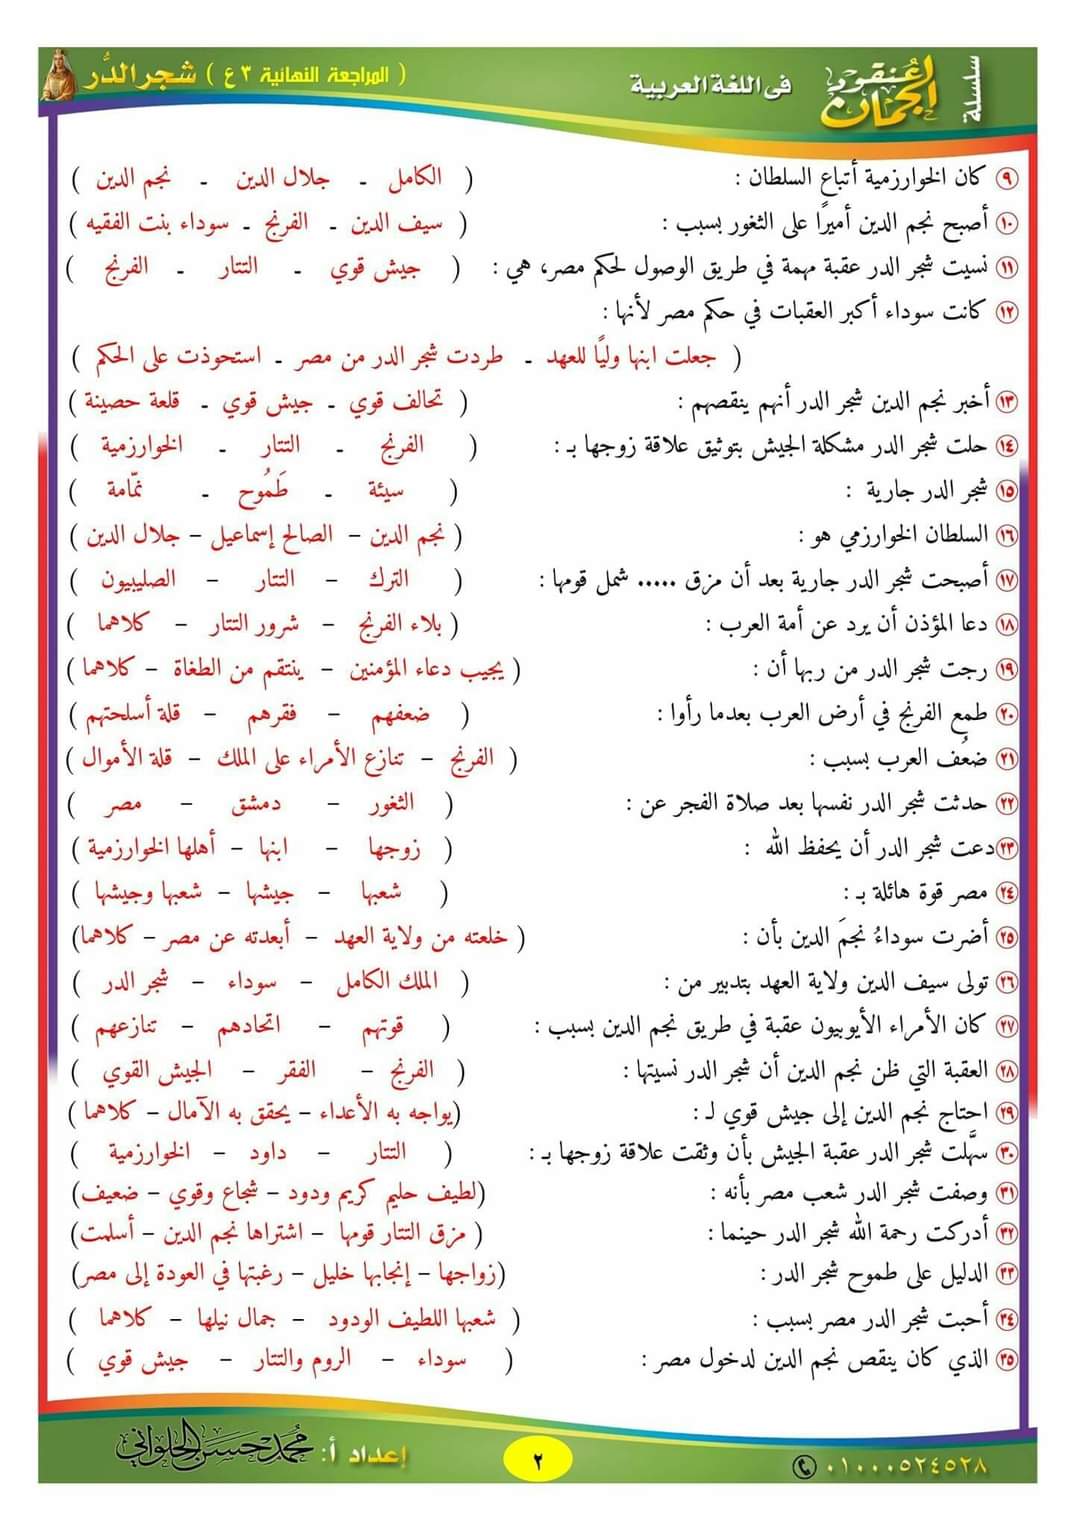 سلسلة
عنقود الجمان
فى اللغة العربية
( المراجعة النهائية ٣ع ) شجر الدُّر
٩ كان الخوارزمية أتباع السلطان : ( الكامل - جلال الدين - نجم الدين )
١٠ أصبح نجم الدين أميرًا على الثغور بسبب : ( سيف الدين - الفرنج - سوداء بنت الفقيه )
١١ نسيت شجر الدر عقبة مهمة في طريق الوصول لحكم مصر، هي : ( جيش قوي - التتار - الفرنج )
١٢ كانت سوداء أكبر العقبات في حكم مصر لأنها :
( جعلت ابنها وليًا للعهد - طردت شجر الدر من مصر - استحوذت على الحكم )
١٣ أخبر نجم الدين شجر الدر أنهم ينقصهم : ( تحالف قوي - جيش قوي - قلعة حصينة )
١٤ حلت شجر الدر مشكلة الجيش بتوثيق علاقة زوجها بـ : ( الفرنج - التتار - الخوارزمية )
١٥ شجر الدر جارية : ( سيئة - طَمُوح - نمّامة )
١٦ السلطان الخوارزمي هو : ( نجم الدين – الصالح إسماعيل – جلال الدين )
١٧ أصبحت شجر الدر جارية بعد أن مزق ..... شمل قومها : ( الترك – التتار – الصليبيون )
١٨ دعا المؤذن أن يرد عن أمة العرب : ( بلاء الفرنج – شرور التتار – كلاهما )
١٩ رجت شجر الدر من ربها أن : ( يجيب دعاء المؤمنين – ينتقم من الطغاة – كلاهما )
٢٠ طمع الفرنج في أرض العرب بعدما رأوا : ( ضعفهم – فقرهم – قلة أسلحتهم )
٢١ ضعُف العرب بسبب : ( الفرنج – تنازع الأمراء على الملك – قلة الأموال )
٢٢ حدثت شجر الدر نفسها بعد صلاة الفجر عن : ( الثغور – دمشق – مصر )
٢٣ دعت شجر الدر أن يحفظ الله : ( زوجها – ابنها – أهلها الخوارزمية )
٢٤ مصر قوة هائلة بـ : ( شعبها – جيشها – شعبها وجيشها )
٢٥ أضرت سوداءُ نجمَ الدين بأن : ( خلعته من ولاية العهد – أبعدته عن مصر – كلاهما)
٢٦ تولى سيف الدين ولاية العهد بتدبير من : ( الملك الكامل – سوداء – شجر الدر )
٢٧ كان الأمراء الأيوبيون عقبة في طريق نجم الدين بسبب : ( قوتهم – اتحادهم – تنازعهم )
٢٨ العقبة التي ظن نجم الدين أن شجر الدر نسيتها : ( الفرنج – الفقر – الجيش القوي )
٢٩ احتاج نجم الدين إلى جيش قوي لـ : (يواجه به الأعداء – يحقق به الآمال – كلاهما )
٣٠ سهَّلت شجر الدر عقبة الجيش بأن وثقت علاقة زوجها بـ : ( التتار – داود – الخوارزمية )
٣١ وصفت شجر الدر شعب مصر بأنه : (لطيف حليم كريم ودود – شجاع وقوي – ضعيف)
٣٢ أدركت رحمة الله شجر الدر حينما : ( مزق التتار قومها – اشتراها نجم الدين – أسلمت)
٣٣ الدليل على طموح شجر الدر : (زواجها – إنجابها خليل – رغبتها في العودة إلى مصر)
٣٤ أحبت شجر الدر مصر بسبب : ( شعبها اللطيف الودود – جمال نيلها – كلاهما )
٣٥ الذي كان ينقص نجم الدين لدخول مصر : ( سوداء – الروم والتتار – جيش قوي )
٠١٠٠٠٥٢٤٥٢٨
٢
إعداد أ: محمد حسن الحلواني